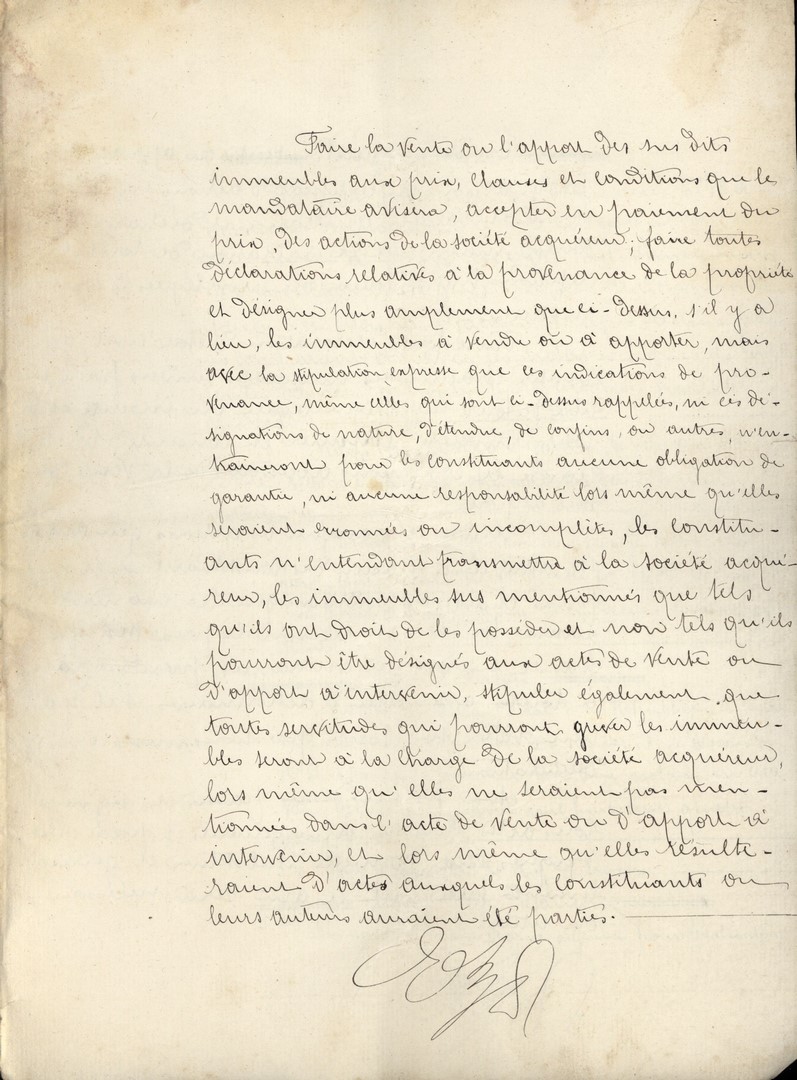 Faire la vente ou l'apport des sus dits
immeubles aux prix, clauses et conditions que le
mandataire avisera, accepter en paiement du
prix, des actions de la société acquéreur; faire toutes
déclarations relatives à la provenance de la propriété
et désigner plus amplement que ci-dessus, s'il y a
lieu, les immeubles à vendre ou à apporter, mais
avec la stipulation expresse que ces indications de pro-
venance, même celles qui sont ci-dessus rappelées, ni ces dé-
signations de nature, d'étendue, de confins, ou autres, n'en-
traineront pour les constituants aucune obligation de
garantie, ni aucune responsabilité lors même qu'elles
seraient erronnées ou incomplètes, les constitu-
ants n'entendant transmettre à la société acqué-
reur, les immeubles sus mentionnés que tels
qu'ils ont droit de les posséder et non tels qu'ils
pourront être désignés aux actes de vente ou
d'apport à intervenir, stipuler également que
toutes servitudes qui pourront grever les immeu-
bles seront à la charge de la société acquéreur,
lors même qu'elles ne seraient pas men-
tionnées dans l'acte de vente ou d'apport à
intervenir, et lors même qu'elles résulte-
raient d'actes auxquels les constituants ou
leurs auteurs auraient été parties.